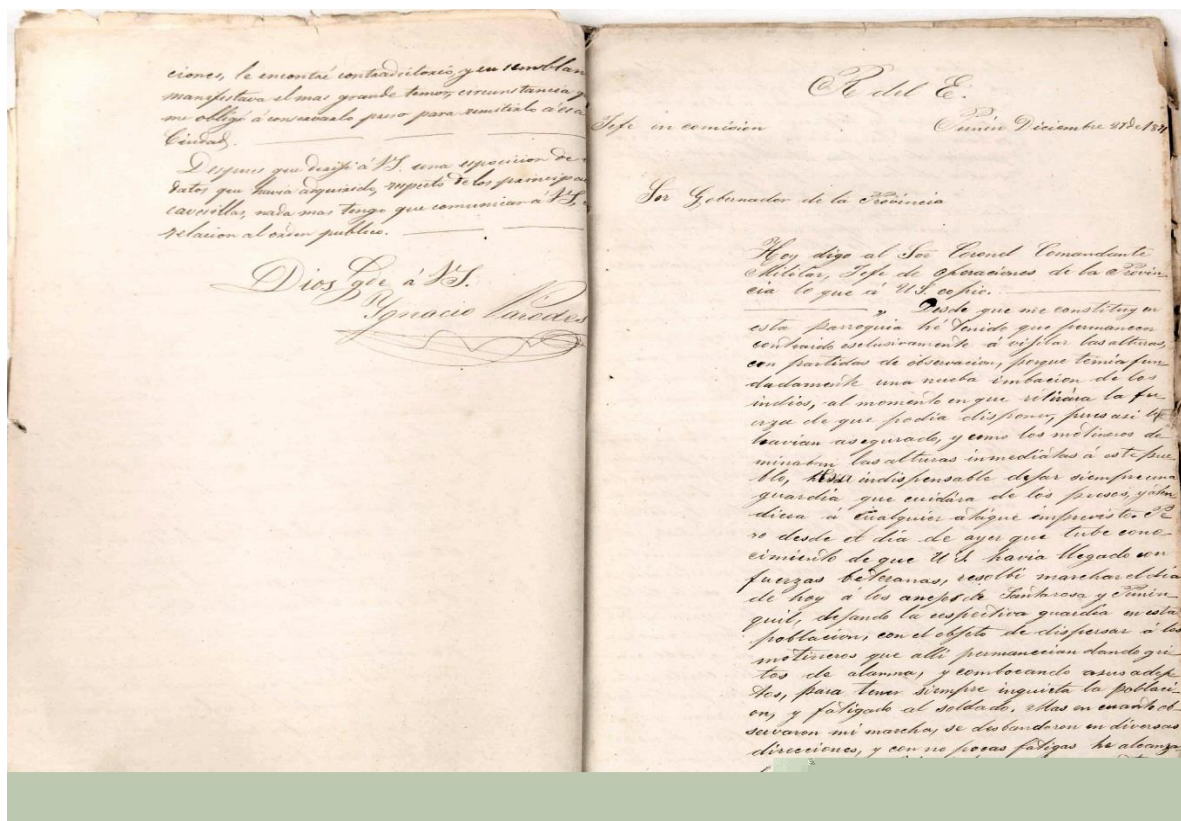 ciones, le encontré contradictorio, y su semblan
manifestava el mas grande temor, circunstancia q
me obligó a conservarlo preso para remitirlo á esa
Ciudad.
Despues que dirifi á VS. una esposicion de
datos que havia adquirido, respecto de los principa
cavesillas, nada mas tengo que comunicar á VS.
relacion al orden publico.
Dios Gde á VS.
Ygnacio Paredes
R del E.
Jefe in comision
Punin Diciembre 27 de 1871
Sor Gobernador de la Provincia
Hoy digo al Sor Coronel Comandante
Militar, Jefe de Operaciones de la Provin
cia lo que á U.S. copio.
" Desde que me constituy en
esta Parroquia hé tenido que permanecer
contraido esclusivamente á vijilar las alturas,
con partidas de observacion, porque temia fun
dadamente una nueba imbacion de los
indios, al momento en que retirára la fu
erza de que podia disponer, pues asi lo
havian asegurado, y como los motineros do
minaban las alturas inmediatas á este pue
blo, era indispensable dejar siempre una
guardia que cuidára de los presos, y aten
diera á cualquier atáque imprevisto. Pe
ro desde el dia de ayer que tube cono
cimiento de que U.S. havia llegado con
fuerzas beteranas, resolbi marchar el dia
de hoy á los anejos de Santarosa y Tunin
quil, dejando la respectiva guardia en esta
poblacion, con el objeto de dispersar á los
motineros que alli permanecian dando gri
tos de alarma, y combocando a sus adep
tos, para tener siempre inquieta la poblaci
on, y fatigado al soldado. Mas en cuanto ob
servaron mi marcha, se desbandaron en diversas
direcciones, y con no pocas fatigas he alcanza